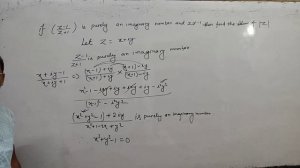 if (z-1/z+1) is purely an imaginary number and z≠-1 then find the value of |z|
Let z = x+iy
z-1/z+1 is purely an imaginary number
x+iy-1/x+iy+1 ⇒ (x-1)+iy/(x+1)+iy × (x+1)-iy/(x+1)-iy
(x²+y²-1)+2iy/x²+1+2x+y² is purely an imaginary number
x²+y²-1=0